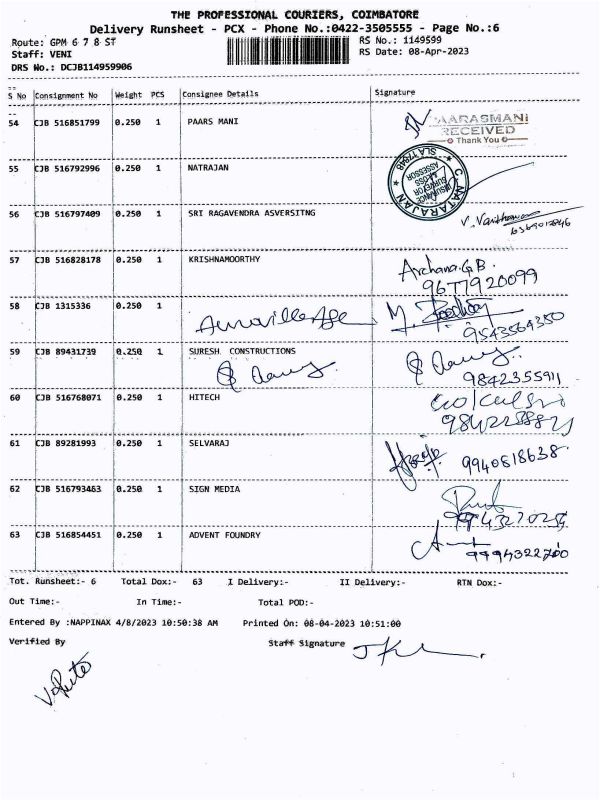 THE PROFESSIONAL COURIERS, COIMBATORE
Delivery Runsheet - PCX - Phone No.:0422-3505555 - Page No.:6
Route: GPM 6 7 8 ST RS No.: 1149599
Staff: VENI RS Date: 08-Apr-2023
DRS No.: DCJB114959906
S No Consignment No Weight PCS Consignee Details Signature
54 CJB 516851799 0.250 1 PAARS MANI
PAARASMANI
RECEIVED
Thank You
55 CJB 516792996 0.250 1 NATRAJAN
C. NATARAJAN
INSURANCE
SURVEYOR
& LOSS
ASSESSOR
56 CJB 516797409 0.250 1 SRI RAGAVENDRA ASVERSITNG
57 CJB 516828178 0.250 1 KRISHNAMOORTHY Archana.G.B.
9677920099
58 CJB 1315336 0.250 1
9543564350
59 CJB 89431739 0.250 1 SURESH CONSTRUCTIONS
9842355911
60 CJB 516768071 0.250 1 HITECH
61 CJB 89281993 0.250 1 SELVARAJ 9940518638
62 CJB 516793463 0.250 1 SIGN MEDIA
63 CJB 516854451 0.250 1 ADVENT FOUNDRY
Tot. Runsheet:- 6 Total Dox:- 63 I Delivery:- II Delivery:- RTN Dox:-
Out Time:- In Time:- Total POD:-
Entered By :NAPPINAX 4/8/2023 10:50:38 AM Printed On: 08-04-2023 10:51:00
Verified By Staff Signature